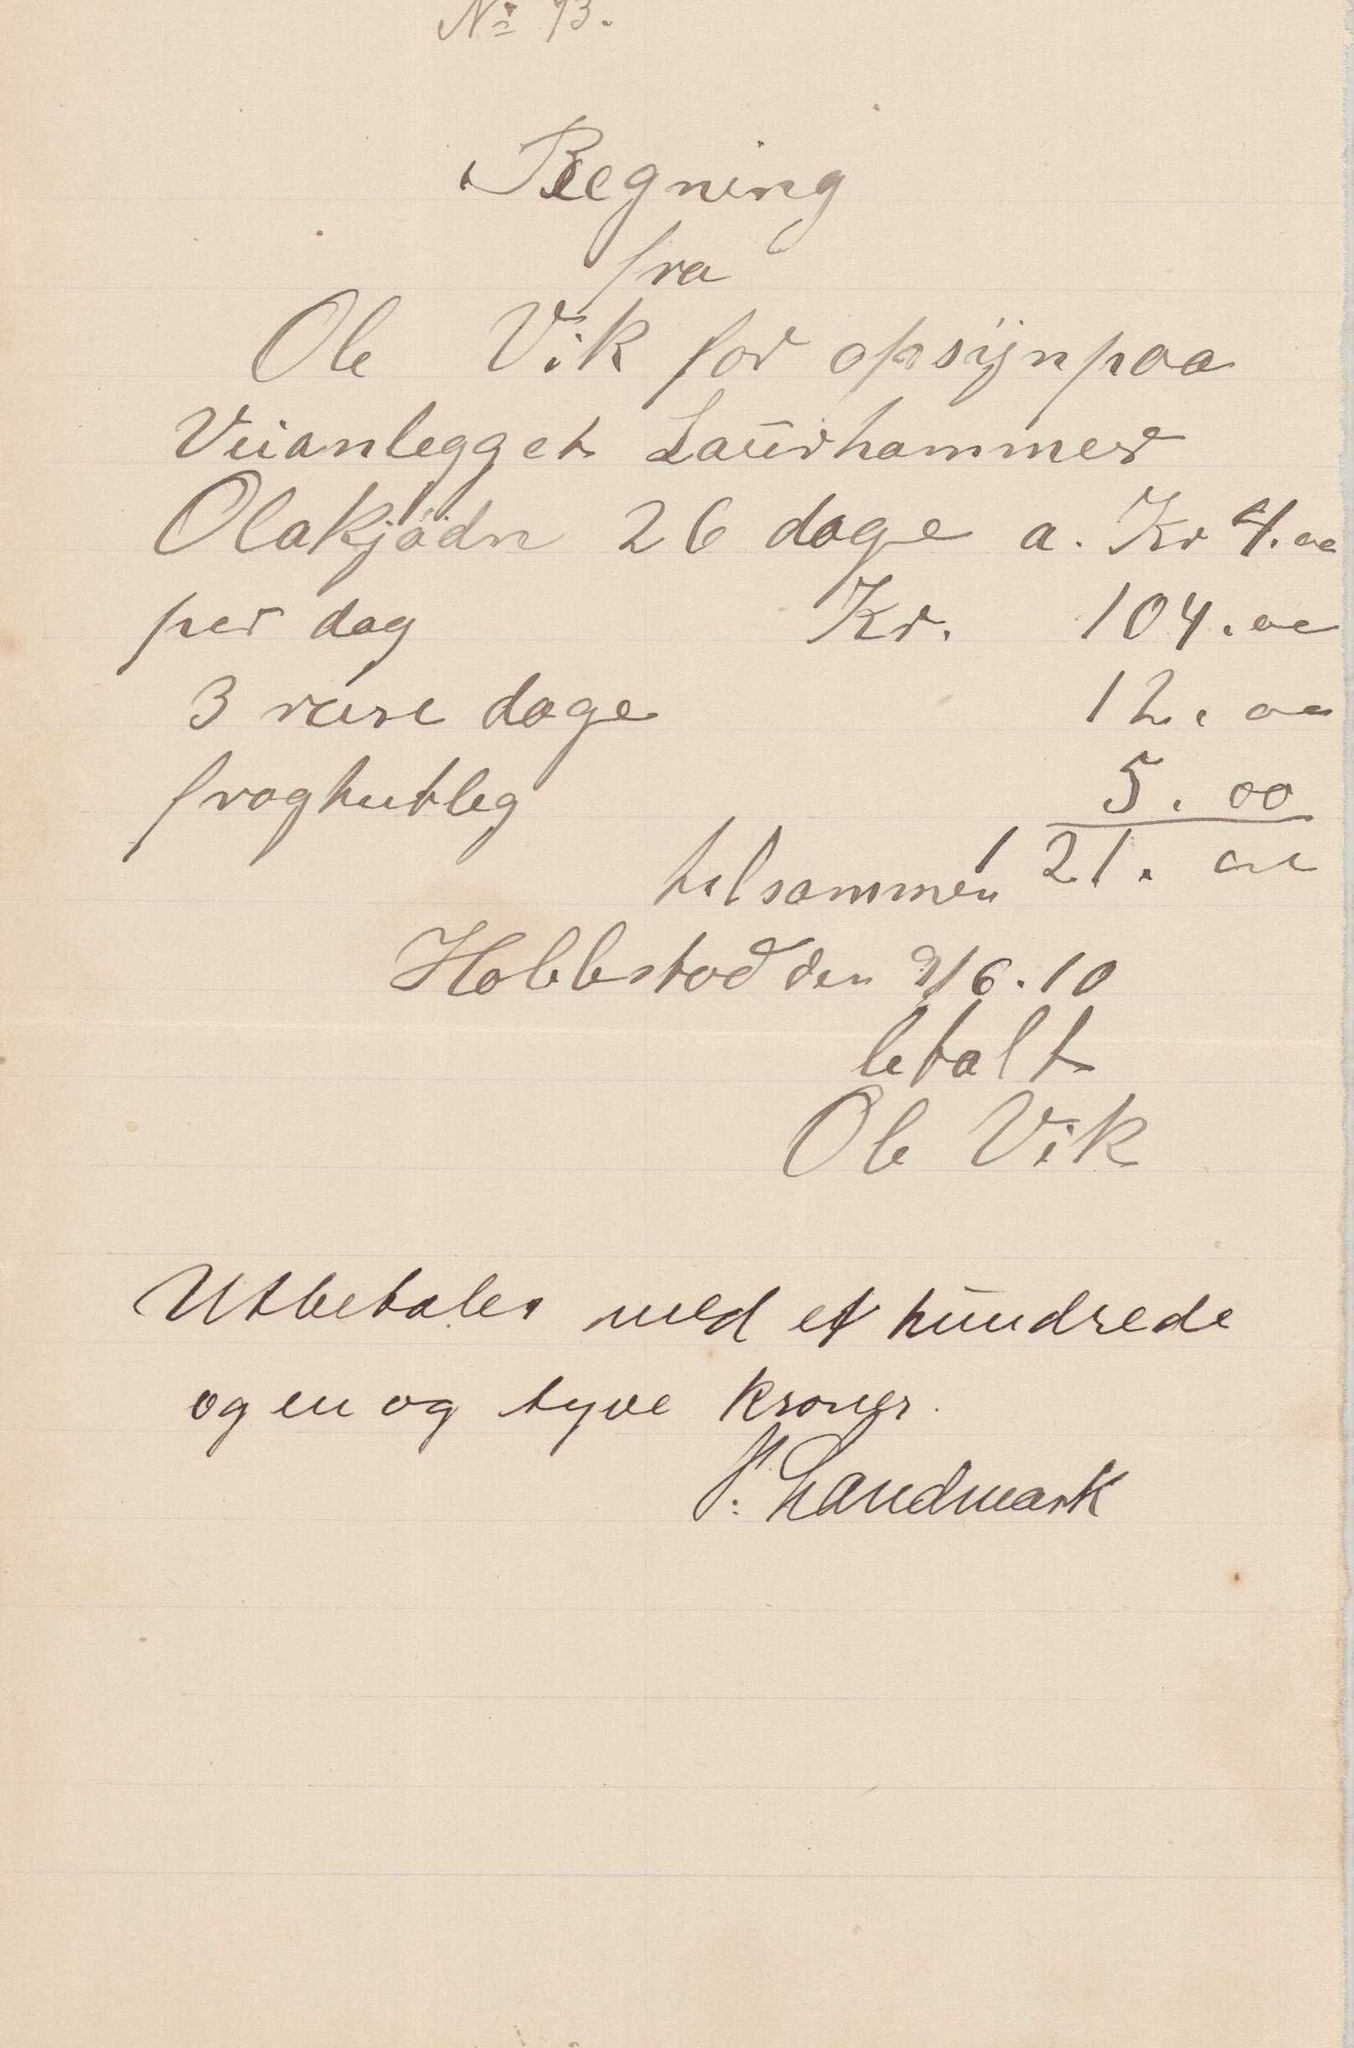 No 73.
Regning
fra
Ole Vik for opsijn paa
Veianlegget Laurhammer
Olakjødn 26 dage a. Kr 4.00
per dag Kr. 104.00
3 reise dage 12.00
fragtutleg 5.00
tilsammen 121.00
Hollestad den 9/6.10
betalt
Ole Vik
Utbetales med et hundrede
og en og tyve kroner.
N. Landmark